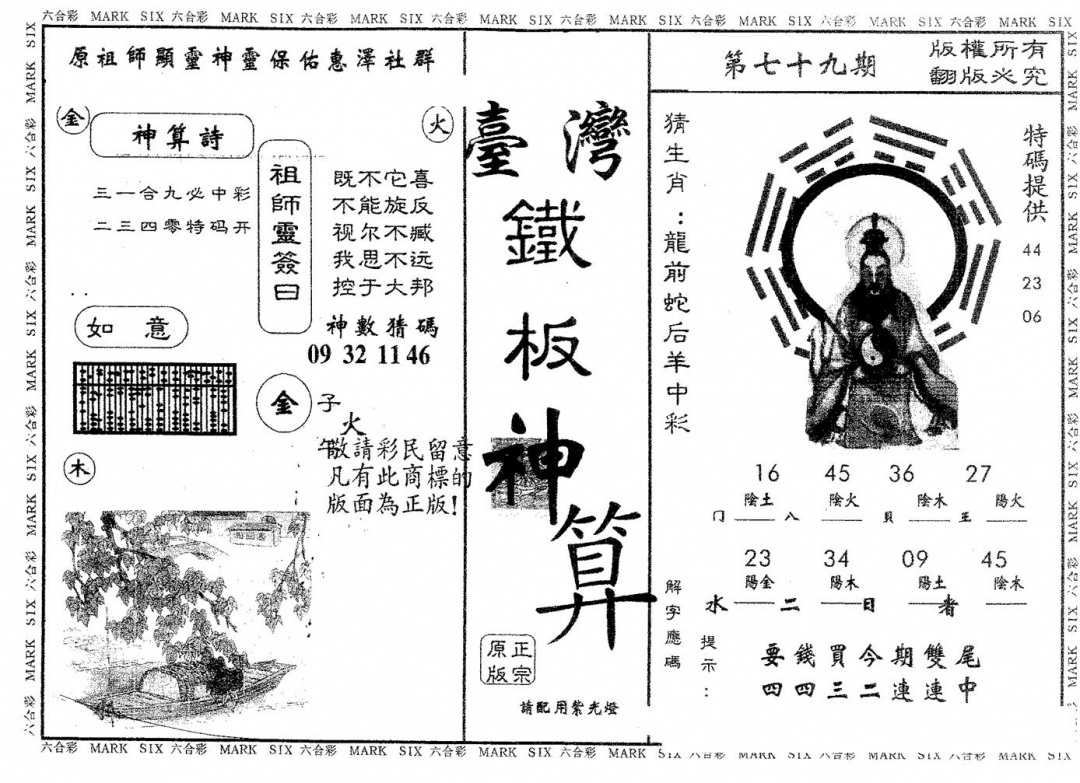 六合彩 MARK SIX 六合彩 MARK SIX 六合彩 MARK SIX 六合彩 MARK SIX 六合彩 MARK SIX 六合彩 MARK SIX 六合彩 MARK SIX 六合彩 MARK SIX
原祖師顯靈神靈保佑惠澤社群
金
神算詩
火
三一合九必中彩
二三四零特码开
祖師靈簽曰
既不它喜
不能旋反
视尔不臧
我思不远
控于大邦
神數猜碼
09 32 11 46
如意
金
子
火
午
木
敬請彩民留意
凡有此商標的
版面為正版!
臺灣
鐵
板
神
算
正宗
原版
請配用紫光燈
第七十九期
版權所有
翻版必究
猜生肖：龍前蛇后羊中彩
特碼提供
44
23
06
16 45 36 27
陰土 陰火 陰木 陽火
门 八 貝 王
23 34 09 45
陽金 陽木 陽土 陰水
水 二 日 者
解字應碼
提示：
要錢買今期雙尾
四四三二連連中
六合彩 MARK SIX 六合彩 MARK SIX 六合彩 MARK SIX 六合彩 MARK SIX 六合彩 MARK SIX 六合彩 MARK SIX 六合彩 MARK SIX 六合彩 MARK SIX